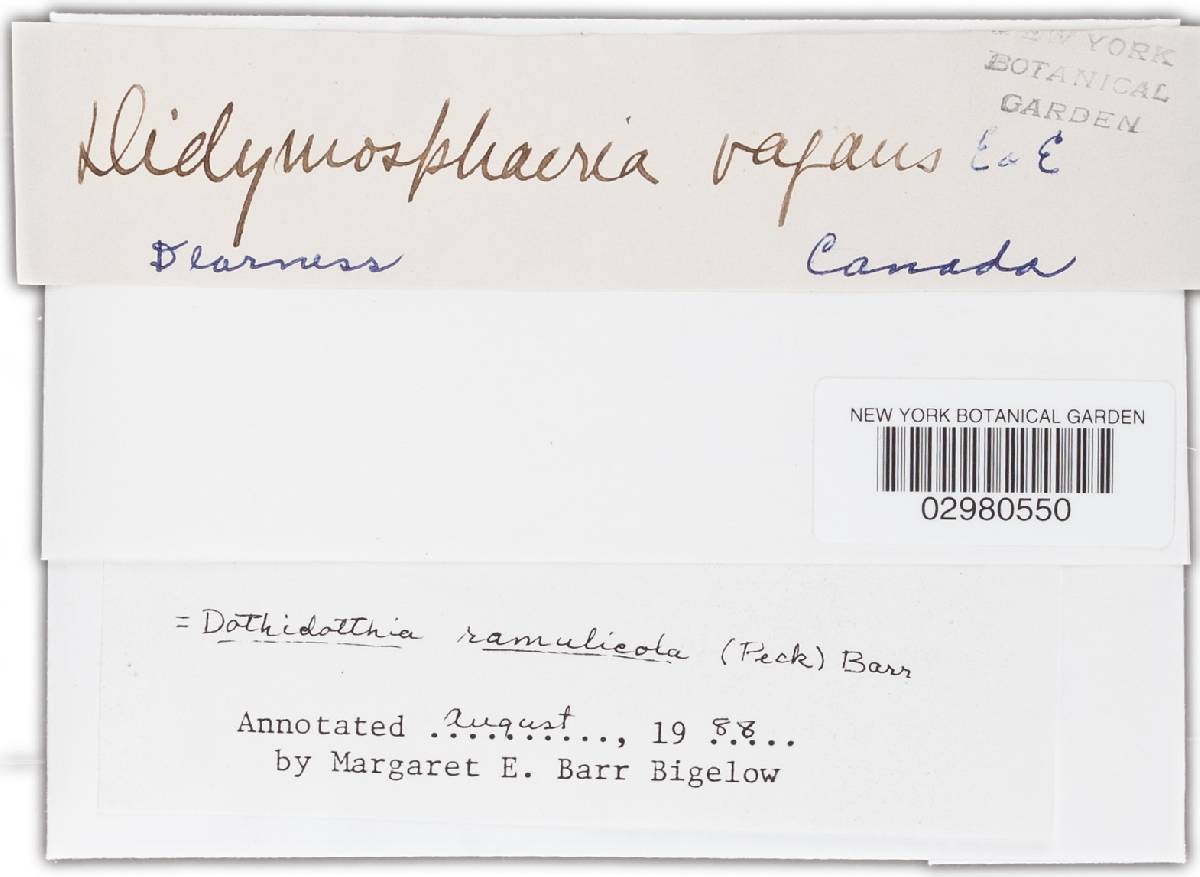 NEW YORK
BOTANICAL
GARDEN
Didymosphaeria vagans E & E
Dearness Canada
NEW YORK BOTANICAL GARDEN
02980550
= Dothidotthia ramulicola (Peck) Barr
Annotated August, 19 88
by Margaret E. Barr Bigelow